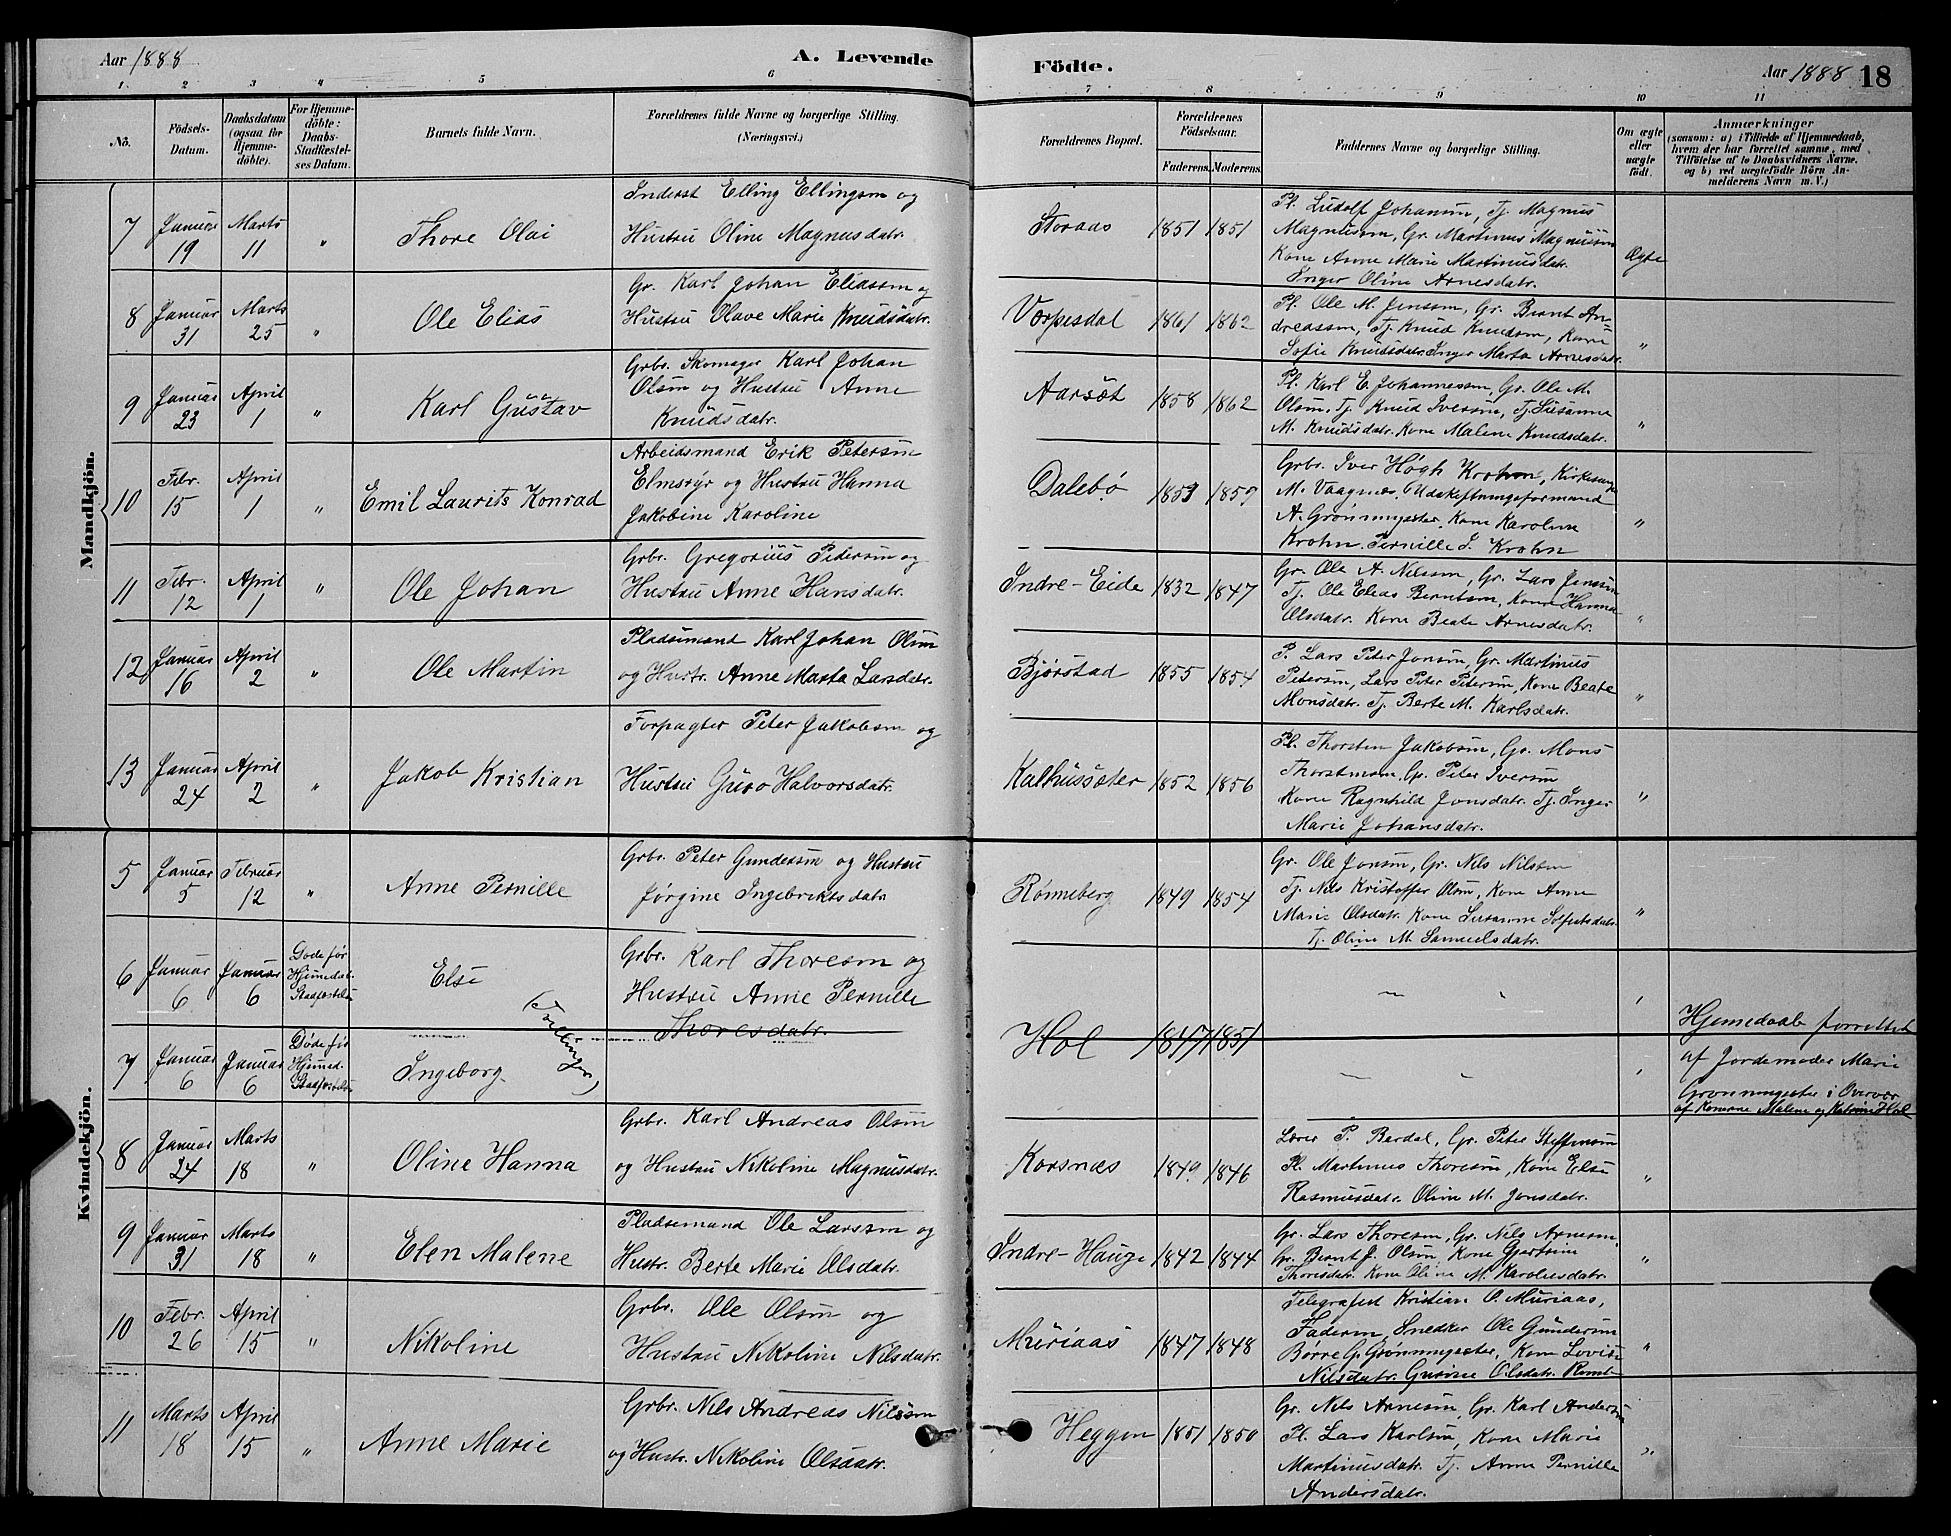 Aar 1888
A. Levende Fødte.
Aar 1888 18
1 2 3 4 5 6 7 8 9 10 11
No.
Fødsels-Datum.
Daabsdatum (ogsaa for Hjemmedøbte).
For Hjemmedøbte: Daabs-Stadfæstelses Datum.
Barnets fulde Navn.
Forældrenes fulde Navne og borgerlige Stilling. (Næringsvei.)
Forældrenes Bopæl.
Forældrenes Fødselsaar.
Faderens. Moderens.
Faddernes Navne og borgerlige Stilling.
Om ægte eller uægte født.
Anmærkninger
(saasom: a) i Tilfælde af Hjemmedaab, hvem der har forrettet samme, med Tilføielse af to Daabsvidners Navne, og b) ved uægtefødte Børn Anmelderens Navn m. V.)
Mandkjön.
7 Januar 19 Marts 11 " Thore Olai
Inderst Elling Ellingsen og
Hustru Oline Magnusdatr.
Storaas 1851 1851
Pl. Ludolf Johansen, Tj. Magnus
Magnussen, Gr. Martinus Magnussen
Kone Anne Marie Martinusdatr.
Inger Oline Arnesdatr.
Ægte
8 Januar 31 Marts 25 " Ole Elias
Gr. Karl Johan Eliassen og
Hustru Olave Marie Knudsdatr.
Vorpesdal 1861 1862
Pl. Ole M. Jenssen, Gr. Bernt An-
dreassen, Tj. Knud Knudsen, Kone
Sofie Knudsdatr. Inger Marta Arnesdatr.
"
9 Januar 23 April 1 " Karl Gustav
Grbr. Skomager Karl Johan
Olsen og Hustru Anne
Knudsdatr.
Aarsöt 1858 1862
Pl. Karl E. Johannessen, Gr. Ole M.
Olsen, Tj. Knud Iversen, Tj. Susanne
M. Knudsdatr. Kone Malene Knudsdatr.
"
10 Febr. 15 April 1 " Emil Laurits Konrad
Arbeidsmand Erik Petersen
Elmsöyr og Hustru Hanna
Jakobine Karoline
Dalebø 1859
Grbr. Iver Høgh Krohn,
M. Vaagnes, Udskiftningsformand
A. Grønmyrsæter, Kone Karoline
Krohn, Pernille J. Krohn
"
11 Febr. 12 April 1 " Ole Johan
Grbr. Gregorius Pedersen og
Hustru Anne Hansdatr.
Indre-Eide 1832 1847
Gr. Ole A. Nilssen, Gr. Lars Jensen
Tj. Ole Elias Berntsen, Kone Hanna
Olsdatr. Kone Beate Arnesdatr.
"
12 Januar 16 April 2 " Ole Martin
Pladsemand Karl Johan Olsen
og Hustr. Anne Marta Larsdatr.
Bjørstad 1855 1854
P. Lars Peter Jonsen, Gr. Martinus
Petersen, Lars Peter Petersen, Kone Beate
Monsdatr. Tj. Berte M. Karlsdatr.
"
13 Januar 24 April 2 " Jakob Kristian
Forpagter Peter Jakobsen og
Hustru Guro Halvorsdatr.
Kalhussæter 1852 1856
Pl. Thorsten Jakobsen, Gr. Mons
Thorstensen, Gr. Peter Iversen
Kone Ragnhild Jonsdatr. Tj. Inger
Marie Johansdatr.
"
Kvindekjön.
5 Januar 5 Februar 12 " Anne Pernille
Grbr. Peter Gundersen og Hustru
Jørgine Ingebriktsdatr.
Rønneberg 1849 1854
Gr. Ole Jonsen, Gr. Nils Nilssen
Tj. Nils Kristoffer Olsen, Kone Anne
Marie Olsdatr. Kone Susanne Solfestsdatr.
Tj. Oline M. Samuelsdatr.
"
6 Januar 6 Januar 6 Døde før Hjemmedaab. Stadfæstelse Else
Grbr. Karl Thoresen og
Hustru Anne Pernille
Thoresdatr.
(Tvillinger)
Hol 1847 1851
7 Januar 6 Januar 6 Døde før Hjemmed. Stadfæstelse Ingeborg
Hjemedaab forrettet
af Jordemoder Marie
Grønmyrsæter i Overvær
af Konerne Malene og Katrine Hol
8 Januar 24 Marts 18 " Oline Hanna
Grbr. Karl Andreas Olsen
og Hustru Nikoline Magnusdatr.
Korsnæs 1849 1846
Lærer P. Berdal, Gr. Peter Steffensen
Pl. Martinus Thoresen, Kone Else
Rasmusdatr. Oline M. Jonsdatr.
"
9 Januar 31 Marts 18 " Elen Malene
Pladsemand Ole Larssen og
Hustr. Berte Marie Olsdatr.
Indre-Hauge 1842 1844
Gr. Lars Thoresen, Gr. Nils Arnesen,
Gr. Bernt J. Olsen, Kone Gjertrine
Thoresdatr. Kone Oline M. Karolusdatr.
"
10 Febr. 26 April 15 " Nikoline
Grbr. Ole Olsen og
Hustru Nikoline Nilsdatr.
Muriaas 1847 1848
Telegrafist Kristian O. Muriaas,
Faderen, Snedker Ole Gundersen
Børre G. Grønmyrsæter, Kone Lovise
Nilsdatr. Gurine Olsdatr.
"
11 Marts 18 April 15 " Anne Marie
Grbr. Nils Andreas Nilssen
og Hustr. Nikoline Olsdatr.
Heggen 1851 1850
Gr. Nils Arnesen, Gr. Karl Andersen
Pl. Lars Karlsen, Kone Marie
Martinusdatr. Tj. Anne Pernille
Andersdatr.
"